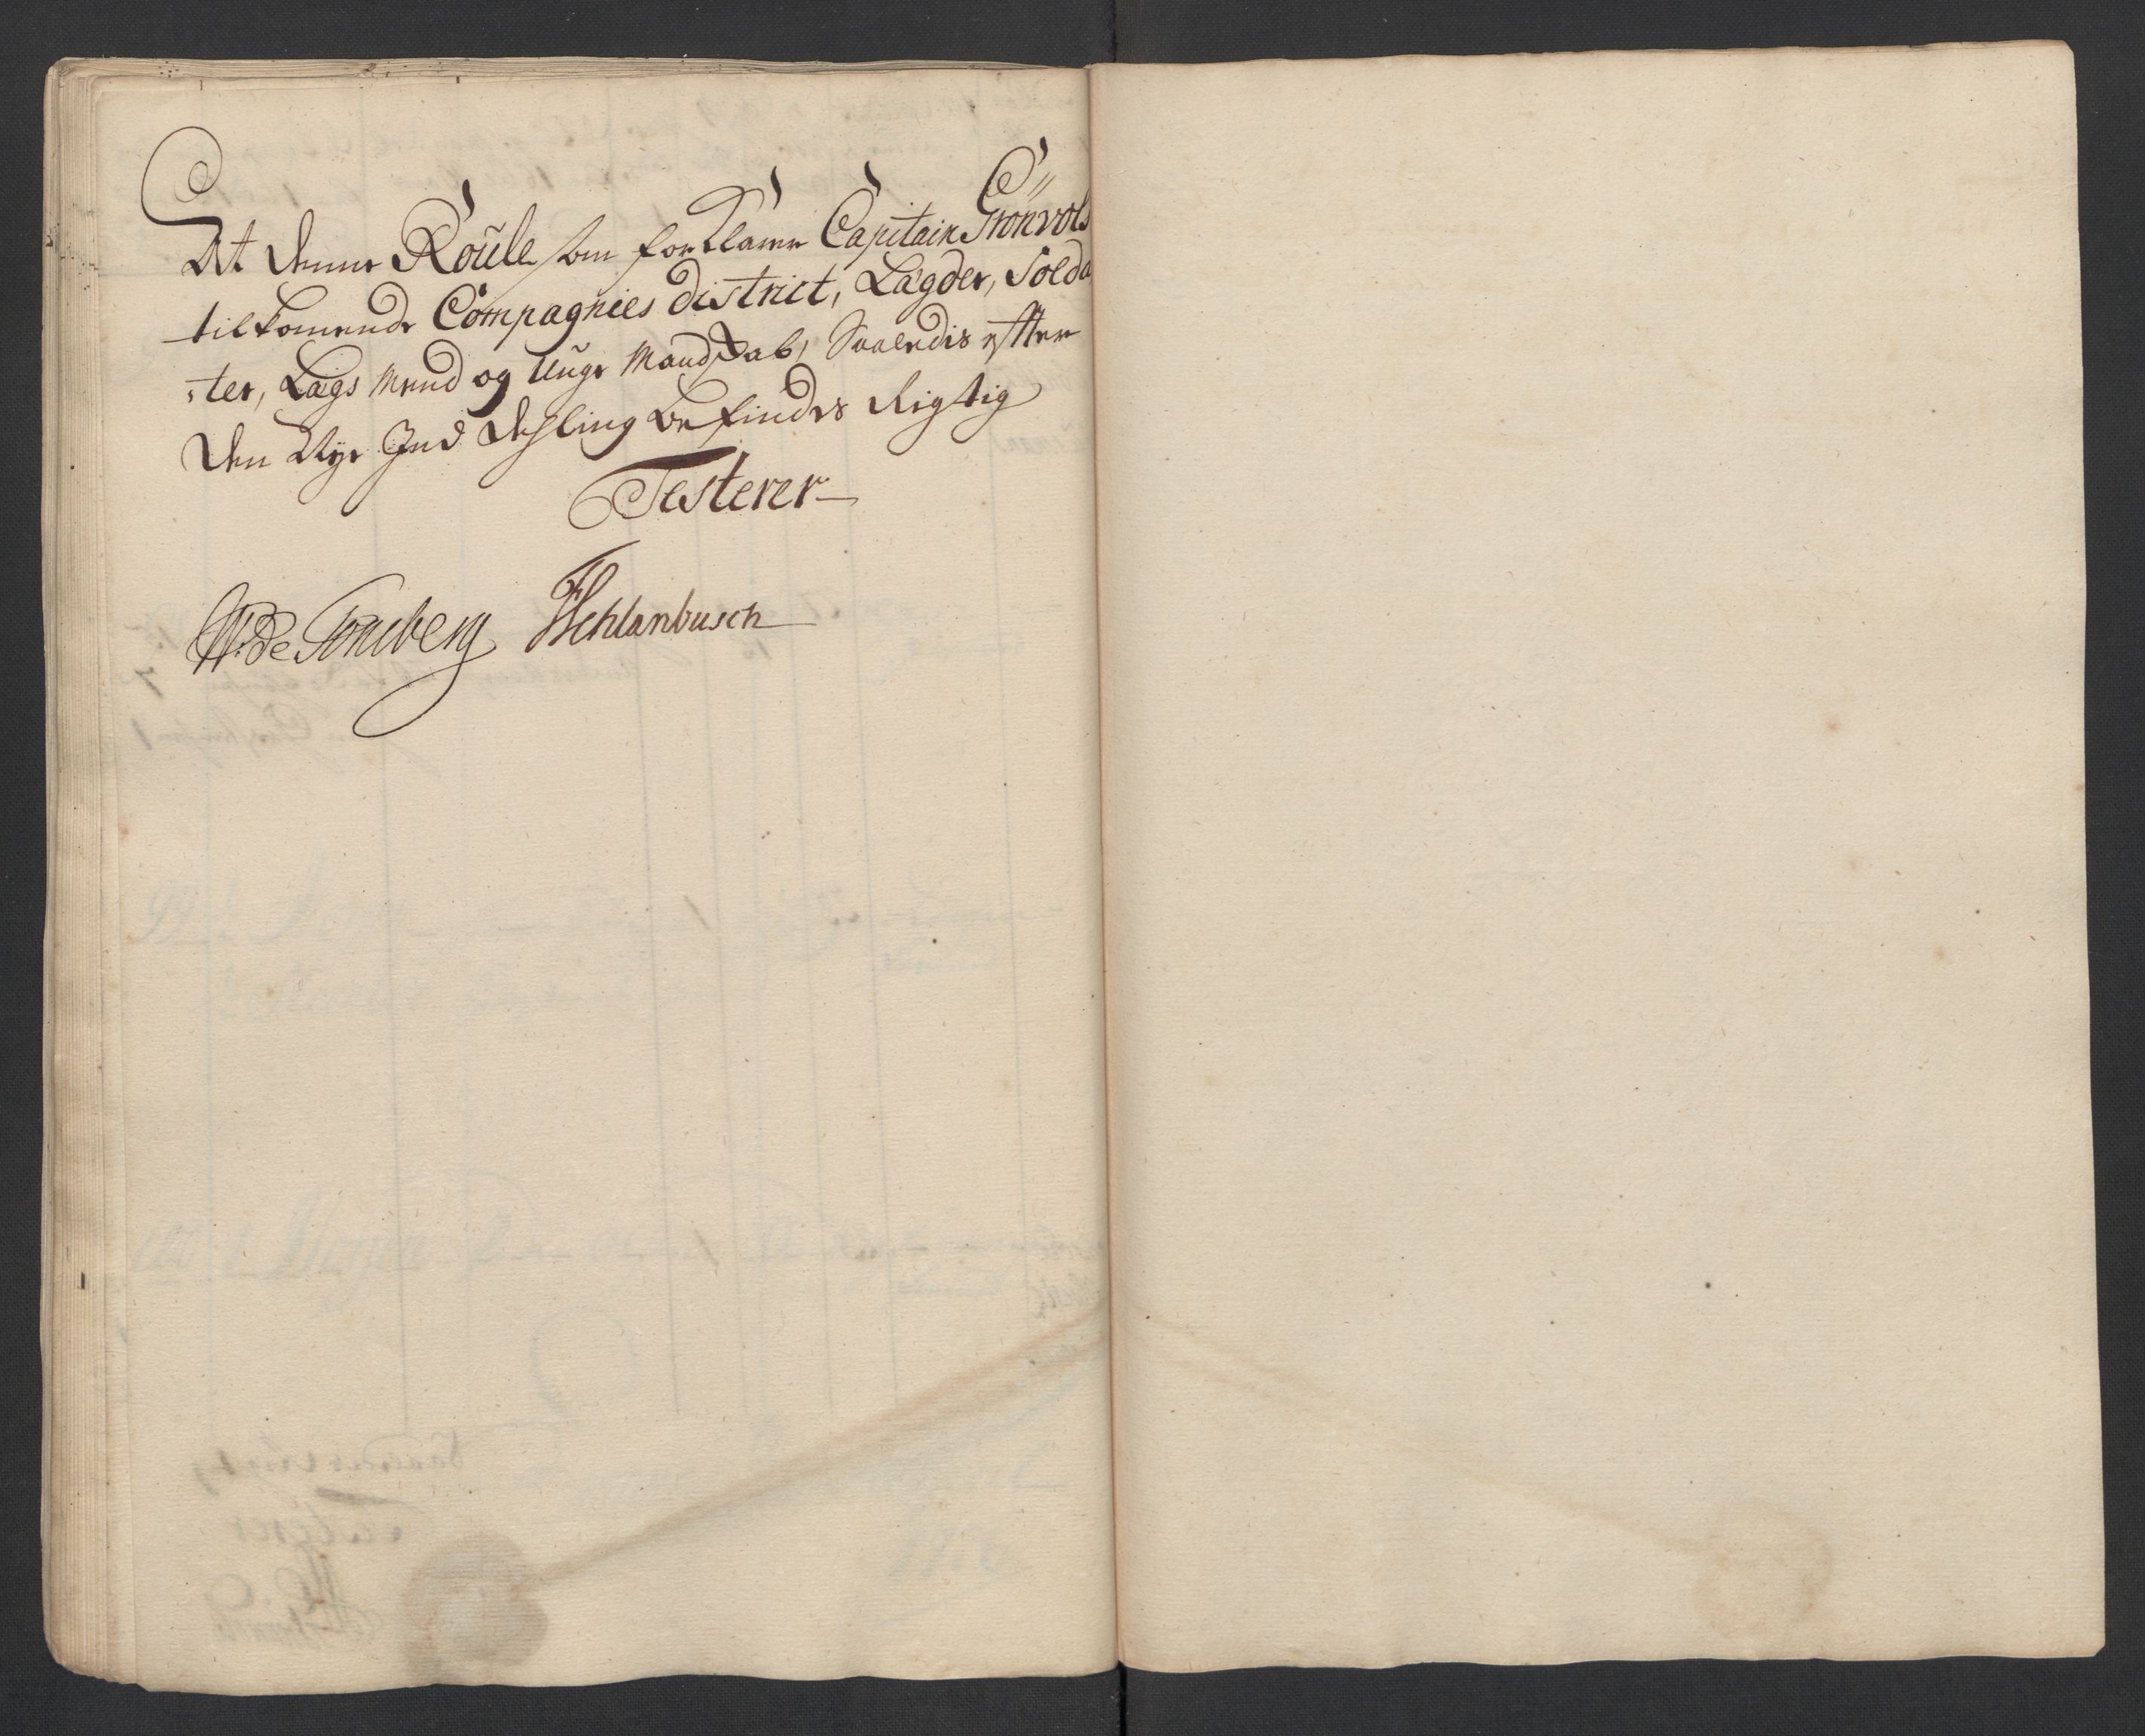 At denne Roule som forklarer Capitain Grønvols
tilkomende Compagnies district, Lægder, Solda
-ter, Lægs Mænd og Unge Mandskab, Saaledis efter
den Nye Inddehling befindes Rigtig
Testerer
W: de Toneberg FSchlanbusch